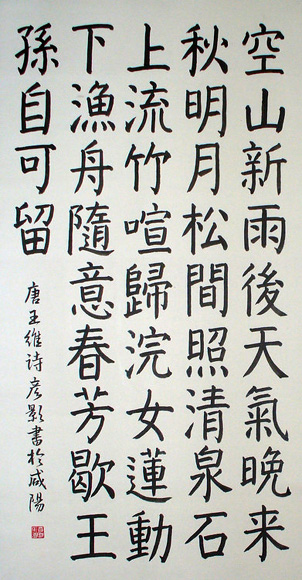 空山新雨後天氣晚来
秋明月松間照清泉石
上流竹喧歸浣女蓮動
下漁舟隨意春芳歇王
孫自可留
唐王維詩彦影書於咸陽